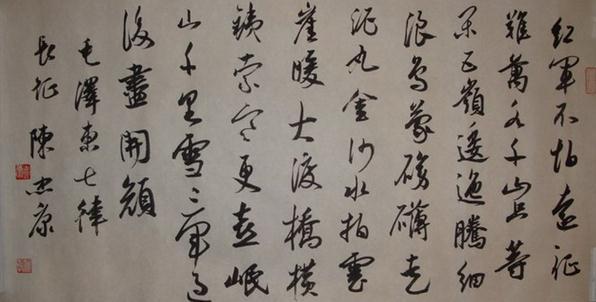 紅軍不怕遠征
難萬水千山只等
閑五嶺逶迤騰細
浪烏蒙磅礴走
泥丸金沙水拍雲
崖暖大渡橋橫
鐵索寒更喜岷
山千里雪三軍過
後盡開顏
毛澤東七律
長征 陳忠康